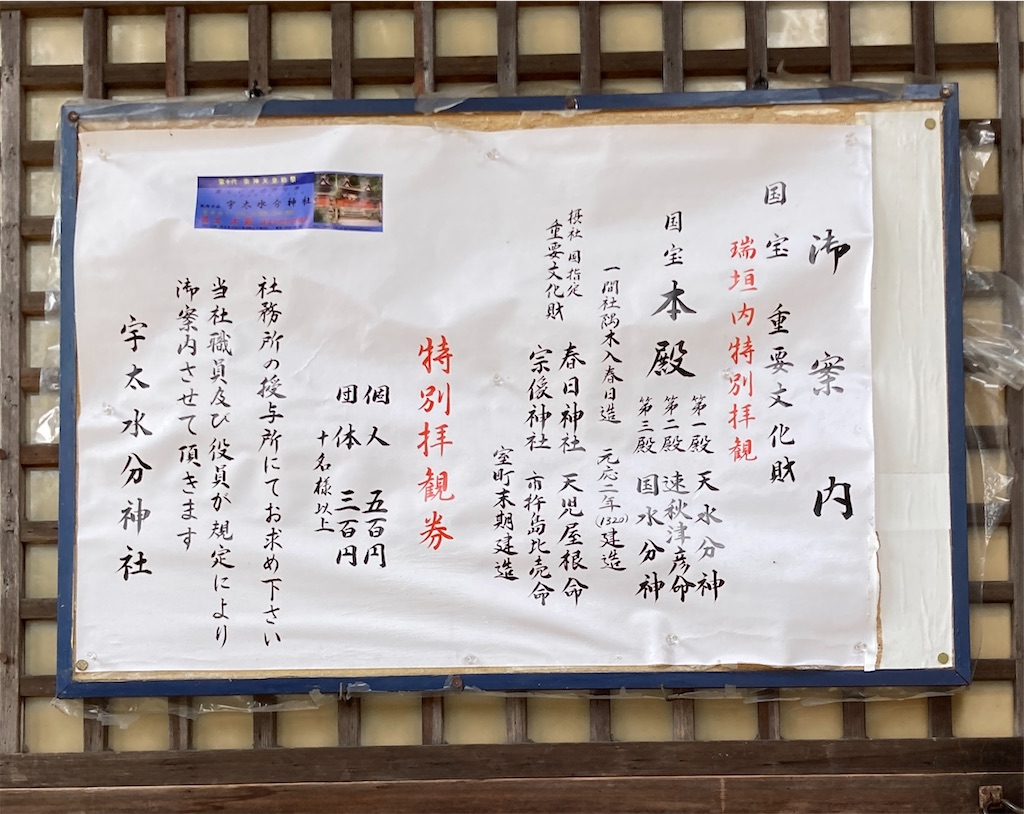 御案内
国宝 重要文化財
瑞垣内特別拝観
国宝 本殿
第一殿 天水分神
第二殿 速秋津彦命
第三殿 国水分神
一間社隅木入春日造 元応二年(1320)建造
摂社 国指定
重要文化財
春日神社 天児屋根命
宗像神社 市杵島比売命
室町末期建造
特別拝観券
個人 五百円
団体 三百円
十名様以上
社務所の授与所にてお求め下さい
当社職員及び役員が規定により
御案内させて頂きます
宇太水分神社
宇太水分神社